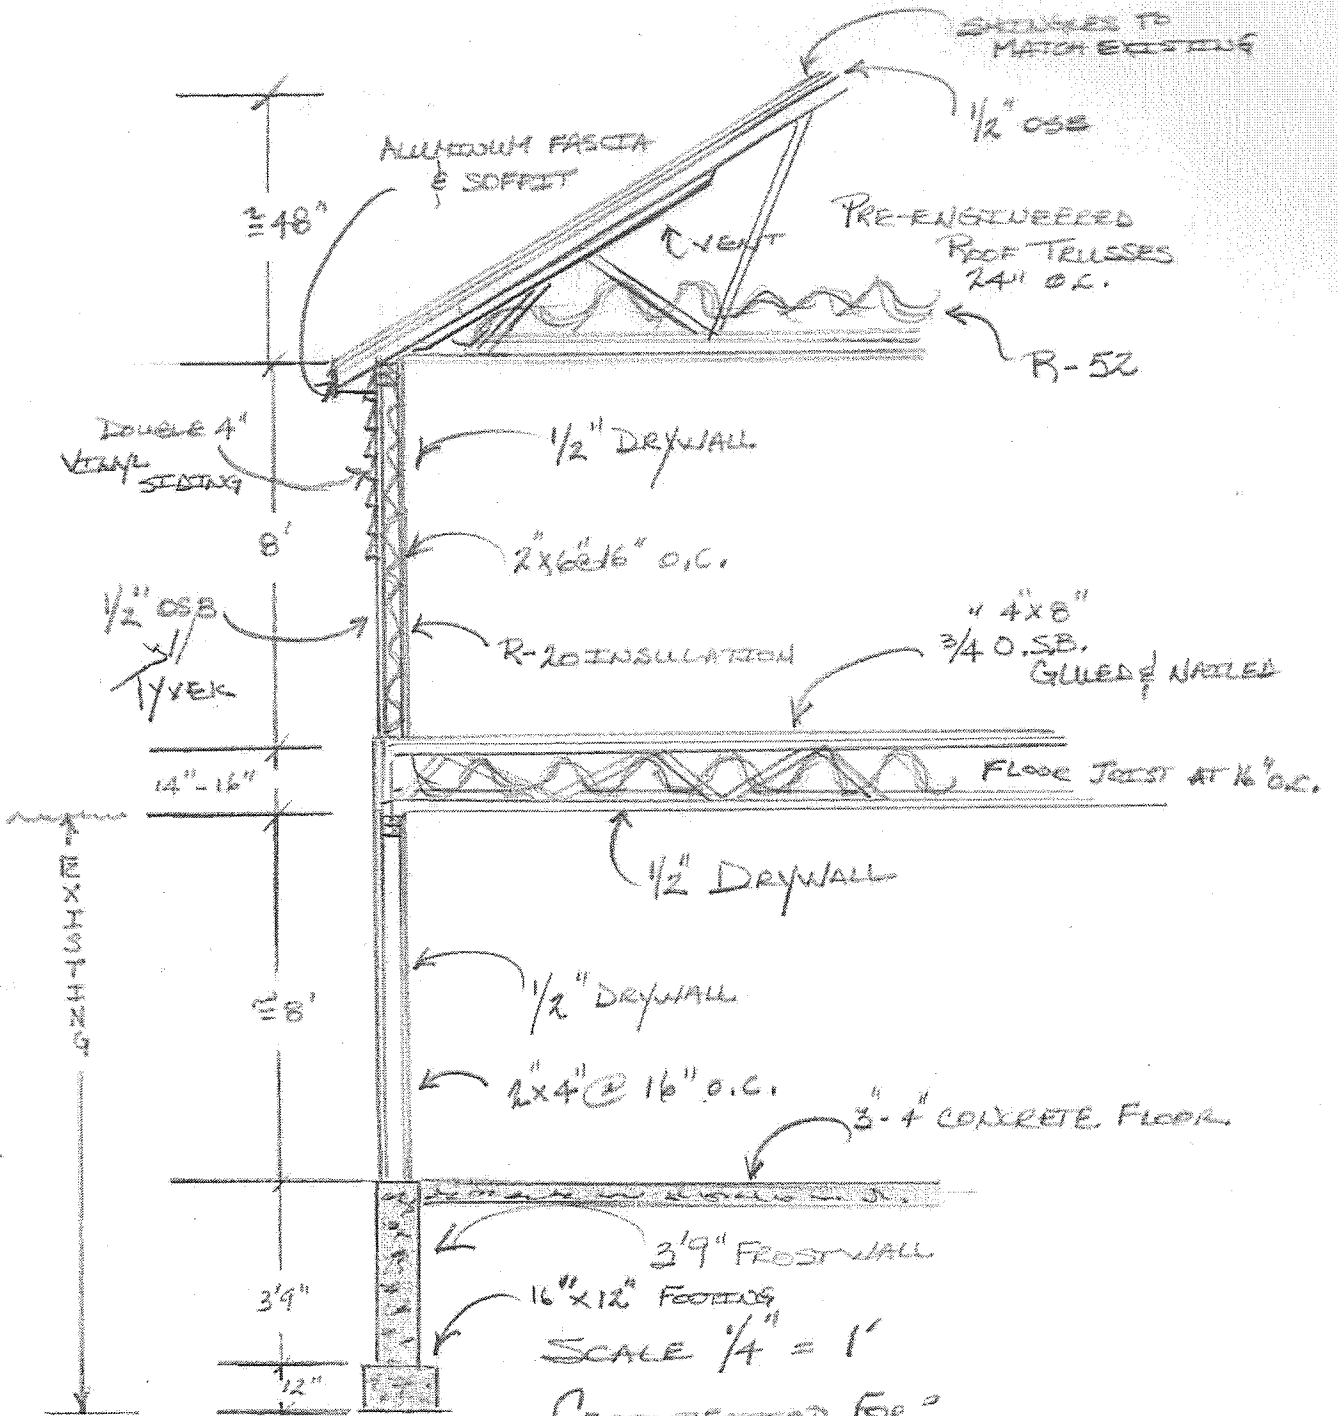 SHINGLES TO
MATCH EXISTING
1/2" OSB
ALUMINUM FASCIA
& SOFFIT
≅48"
VENT
PRE-ENGINEERED
ROOF TRUSSES
24" O.C.
R-52
DOUBLE 4"
VINYL
SIDING
1/2" DRYWALL
8'
2"x6"@16" O.C.
1/2" OSB
TYVEK
R-20 INSULATION
4"x8"
3/4" O.S.B.
GLUED & NAILED
14"-16"
FLOOR JOIST AT 16" O.C.
EXISTING
1/2" DRYWALL
≅8'
1/2" DRYWALL
2"x4"@ 16" O.C.
3"-4" CONCRETE FLOOR
3'9" FROSTWALL
3'9"
16"x12" FOOTING
SCALE 1/4" = 1'
12"